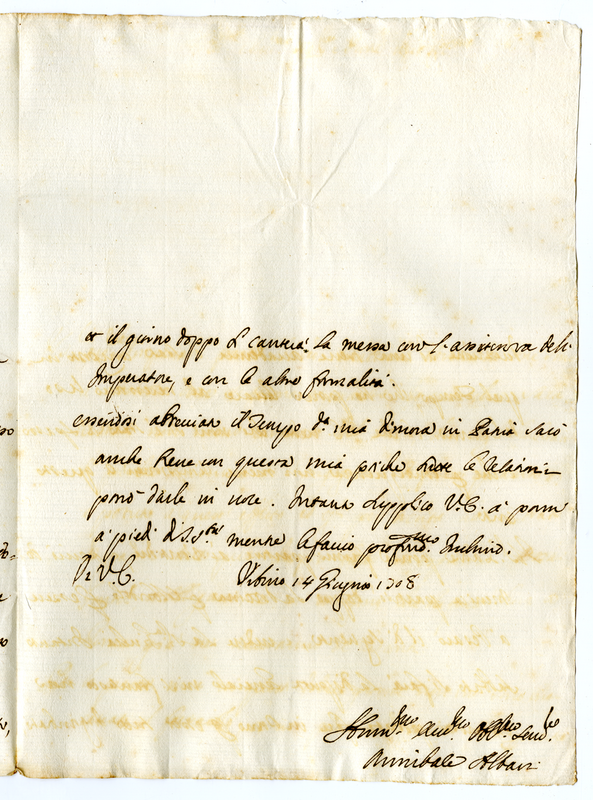 et il giorno doppo si canterà la messa con l'assistenza dell'
Imperatore, e con le altre formalità.
essendosi abbreviato il tempo d. mia dimora in
anche breve con questa mia perche tutte le relationi
potrò darle in voce. Intanto supplico V.E. à pormi
à piedi di S. S.tà mentre le faccio profond.mo Inchino.
Di V.E. Vrbino 14 Giugno 1708
Hum.mo Obl.mo Seru.re
Annibale Albani